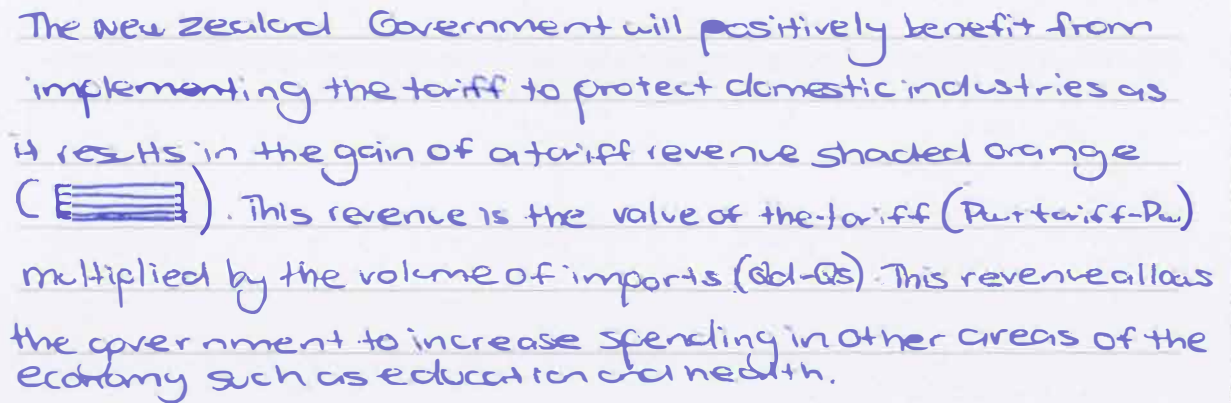 The New Zealand Government will positively benefit from
implementing the tariff to protect domestic industries as
it results in the gain of a tariff revenue shaded orange
( ). This revenue is the value of the tariff (Pw+tariff-Pw)
multiplied by the volume of imports (Qd-Qs). This revenue allows
the government to increase spending in other areas of the
economy such as education and health.